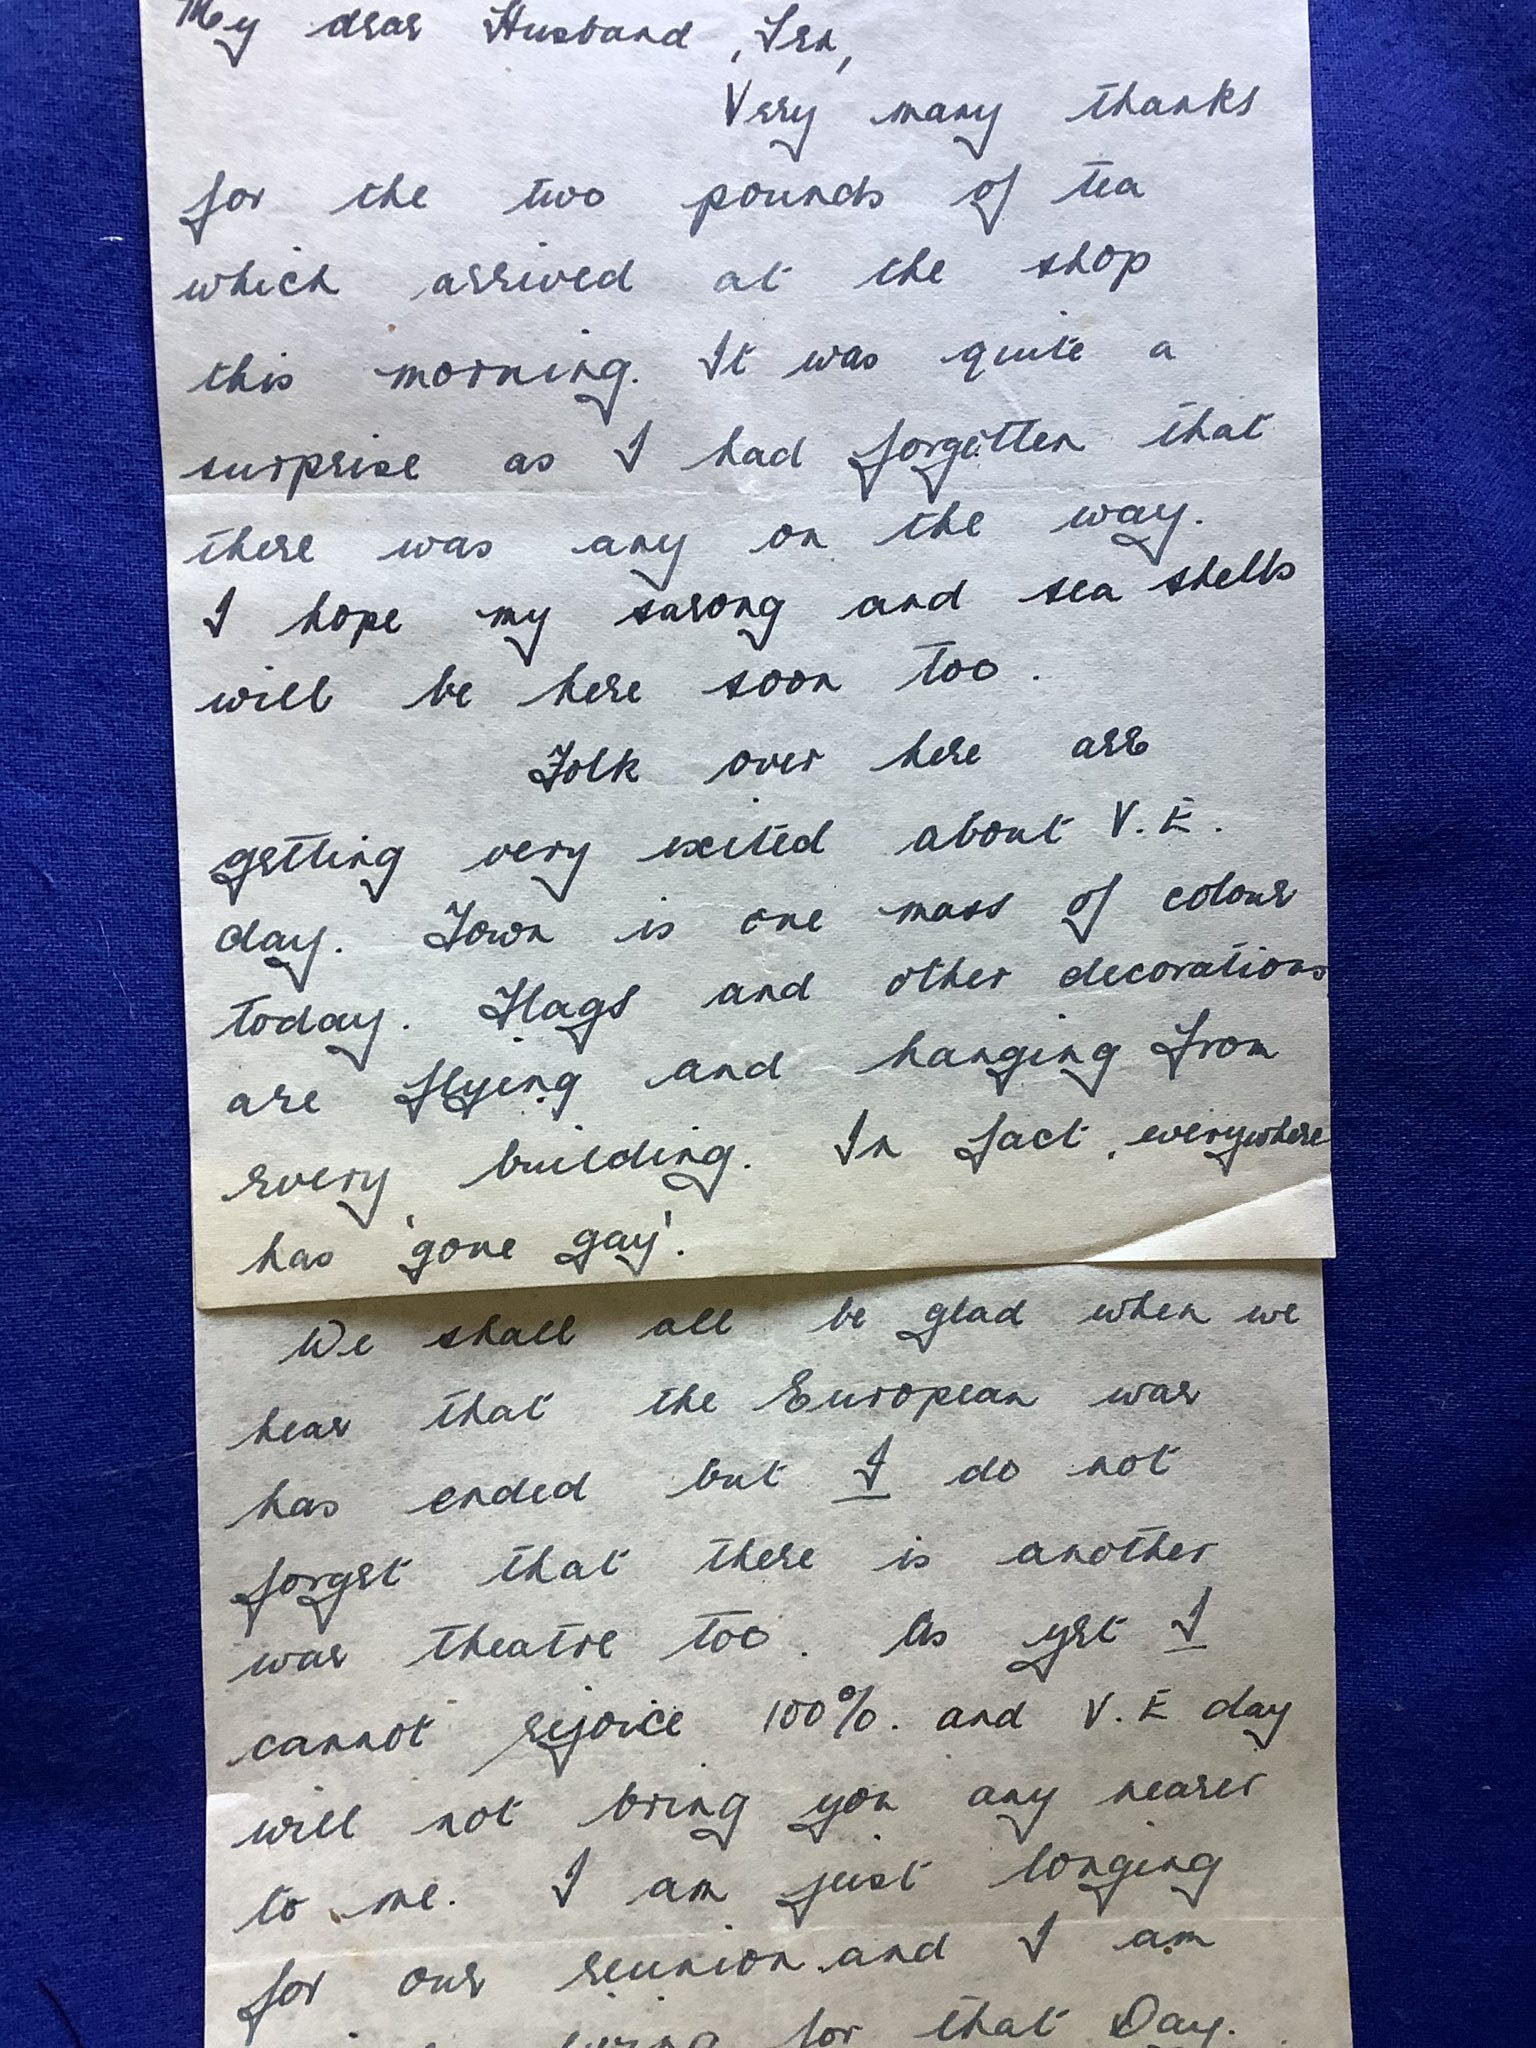 My dear Husband, Len,
Very many thanks
for the two pounds of tea
which arrived at the shop
this morning. It was quite a
surprise as I had forgotten that
there was any on the way.
I hope my sarong and sea shells
will be here soon too.
Folk over here are
getting very excited about V.E.
day. Town is one mass of colour
today. Flags and other decorations
are flying and hanging from
every building. In fact, everywhere
has 'gone gay'.
We shall all be glad when we
hear that the European war
has ended but I do not
forget that there is another
war theatre too. As yet I
cannot rejoice 100%. and V.E day
will not bring you any nearer
to me. I am just longing
for our reunion and I am
living for that Day.